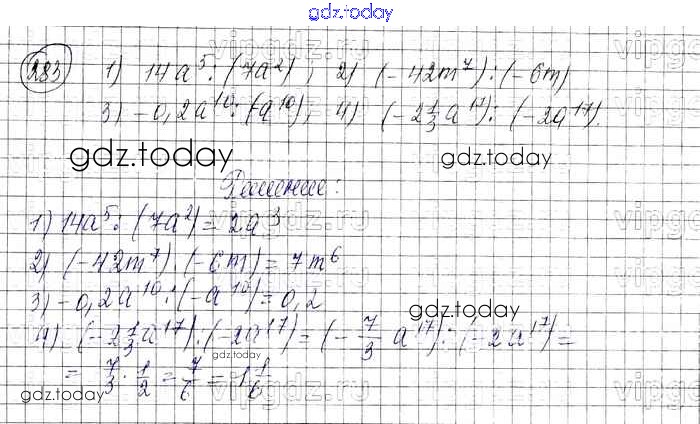 gdz.today
283 1) 14a⁵ : (7a²) ; 2) (-42m⁷) : (-6m)
3) -0,2a¹⁰ : (-a¹⁰) ; 4) (-2 1/3 a¹⁷) : (-2a¹⁷).
gdz.today gdz.today
Решение:
1) 14a⁵ : (7a²) = 2a³
2) (-42m⁷) : (-6m) = 7m⁶
3) -0,2a¹⁰ : (-a¹⁰) = 0,2
gdz.today
4) (-2 1/3 a¹⁷) : (-2a¹⁷) = (- 7/3 a¹⁷) : (-2a¹⁷) =
gdz.today
= 7/3 · 1/2 = 7/6 = 1 1/6
gdz.today gdz.today
vipgdz.ru